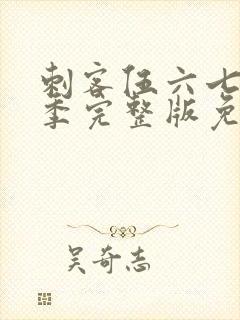 刺客伍六七
季完整版免
吴奇志